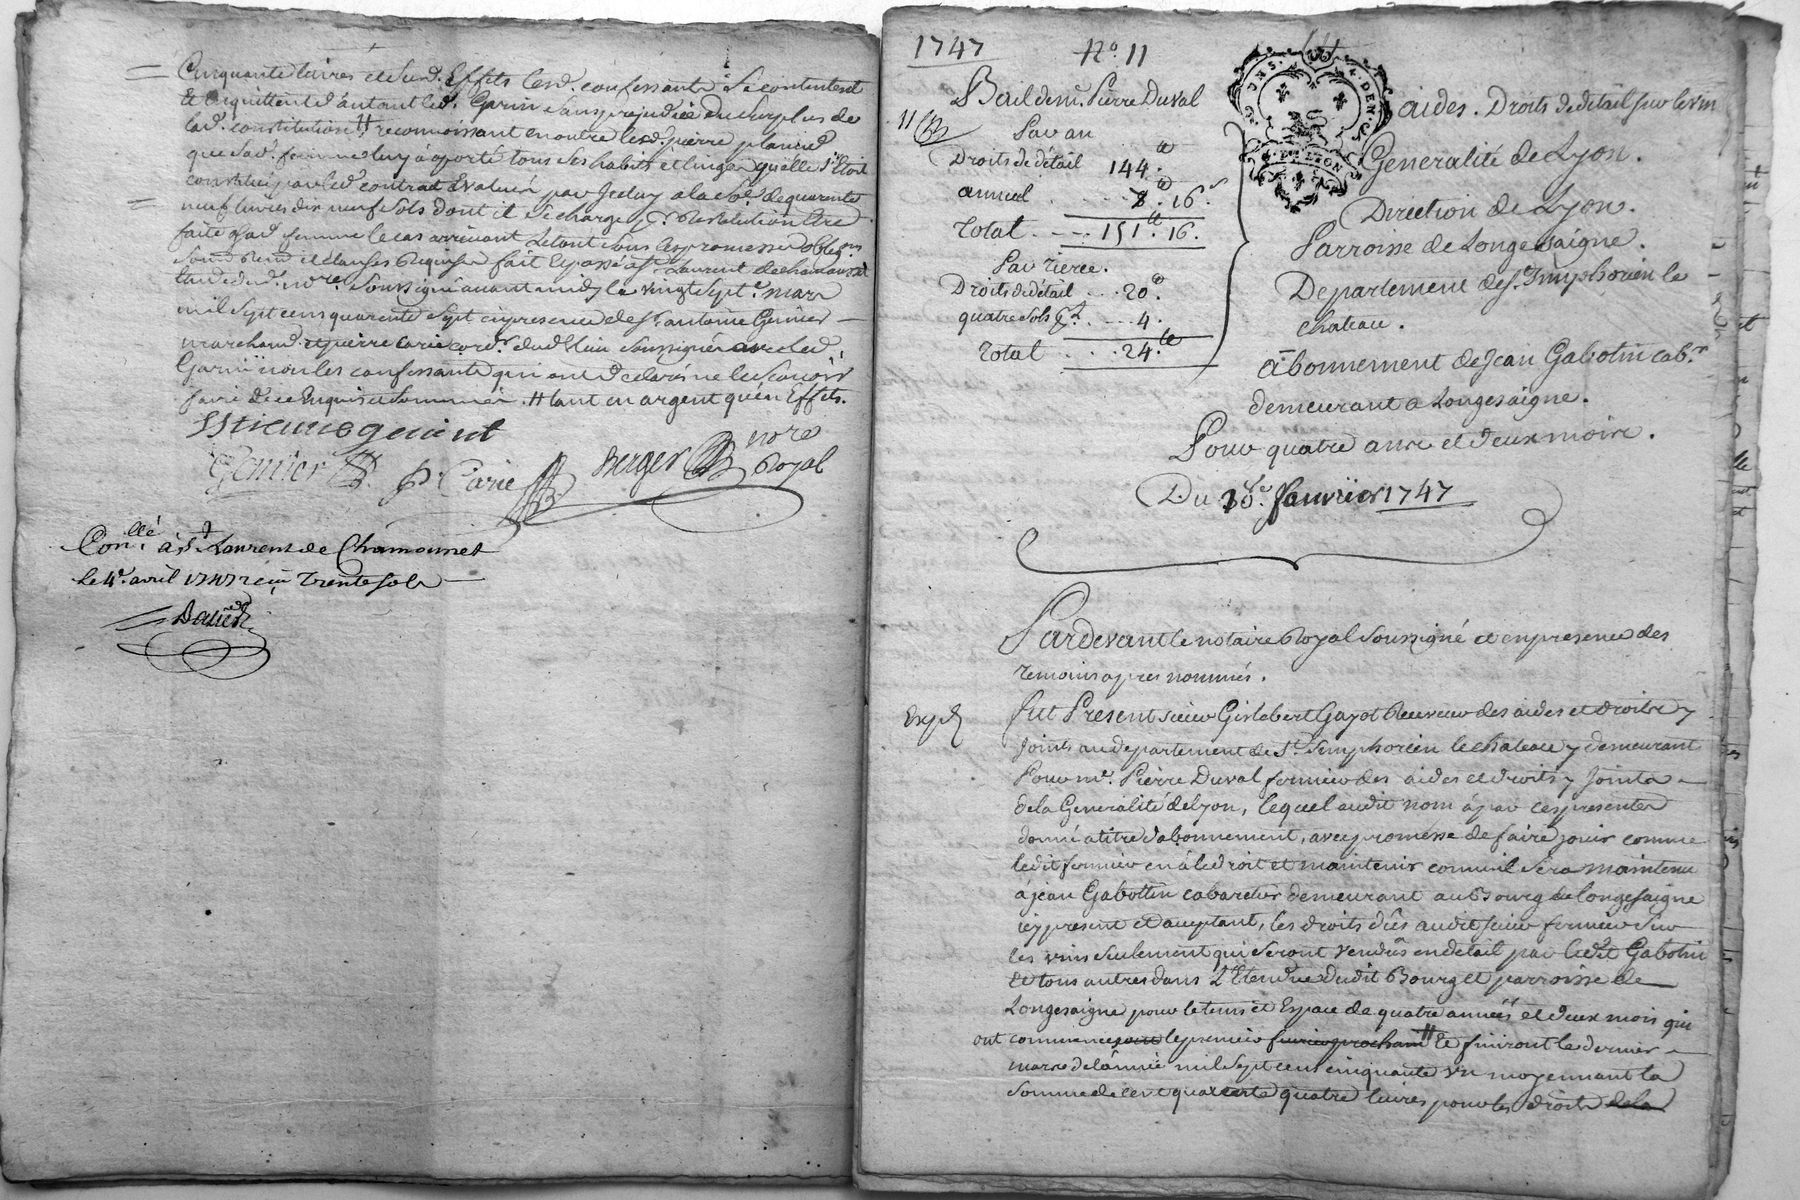 Cinquante livres et sur d. Effets lesd. confessants se contentent
Et enquittent d'autant led. Garin sans prejudice du surplus de
lad. constitution # reconnoissant en outre led. pierre
que sad. femme luy à aporté tous ses habits et linges qu'elle s'Etoit
constitué par led. contrat Evalués par Iceluy a la so.e de quarente
neuf livres dix neuf sols dont il se charge p.r Restitution Etre
faite a sad. femme le cas arrivant Letout sous les promesses obligons
soum. Renon. et clauses Requises fait Et passé a St. Laurent de chamousset
Etude de nore. soussigné avant midy le vingt sept.e mars
mil sept cens quarente sept en presence de sr. antoine Genier
marchand et pierre Carie cord.r dud. lieu soussignés avec led.
Garin non les confessants qui ont declarés ne le scavoir
faire de ce Enquis et sommés. # tant en argent qu'en Effets.
Genier P. Carie Berger nore
Royal
Con.llé à St. Laurens de Chamousset
le 4e. avril 1747 reçu Trente sols
1747 No. 11
Bail de mr. Pierre Duval
11
Par an
Droits de détail 144.tt
annuel 7.tt 16.s
Total 151.tt 16.
Par Tierce.
Droits de détail 20.tt
quatre sols p.l 4.
Total 24.tt
aides. Droits de détail sur le vin
GEN. DE LYON
Generalité de Lyon.
Direction de Lyon.
Parroisse de Longesaigne.
Departement de St. Simphorien le
chateau.
abonnement de Jean Gabotin cab.r
demeurant a Longesaigne.
Pour quatre ans et deux mois.
Du 30e. Janvier 1747
Pardevant le notaire Royal soussigné et en presence des
temoins apres nommés.
Exp.d
fut Present sieur Gislebert Gayot Receveur des aides et droits y
Joints au departement de St. Simphorien le chateau y demeurant
Pour me. Pierre Duval fermier des aides et droits y Joints
de la Generalité de Lyon, lequel audit nom à par ces presentes
donné a titre d'abonnement, avec promesse de faire jouir comme
ledit fermier en à le droit et maintenir comme il sera maintenu
à jean Gabottin cabaretier demeurant au Bourg de longesaigne
icy present et acceptant, les droits dûs audit sieur fermier sur
les vins seulement qui seront vendus en detail par ledit Gabotin
Et tous autres dans L'Etendue dudit Bourg et parroisse de
Longesaigne pour le tems et Espace de quatre années et deux mois qui
ont commencé sont le premier fevrier prochain # Et finiront le dernier
mars de l'année mil sept cent cinquante un moyennant la
somme de cent quarente quatre livres pour les droits de la